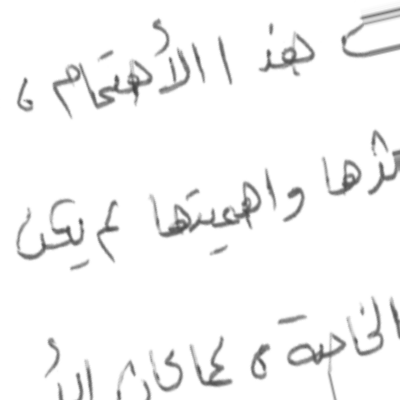 هذا الأهتمام ،
واهميتها لم يكن
الخاصة ، كما كان